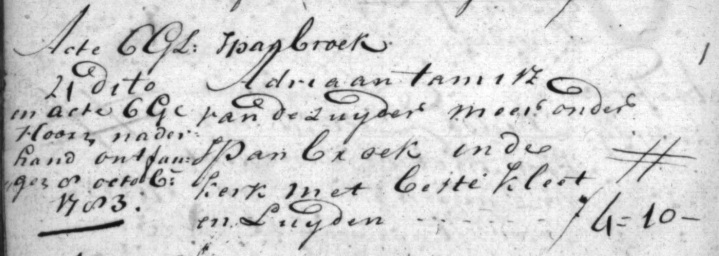 Acte 6 GL: Spanbroek
21 dito Adriaan
en acte 6 Gl van de Zuyder meer onder
nader:
hand ontfan= Spanbroek in de
gen 8 octob: kerk met beste kleet
1783.
en Luyden - - - - - 4=10-